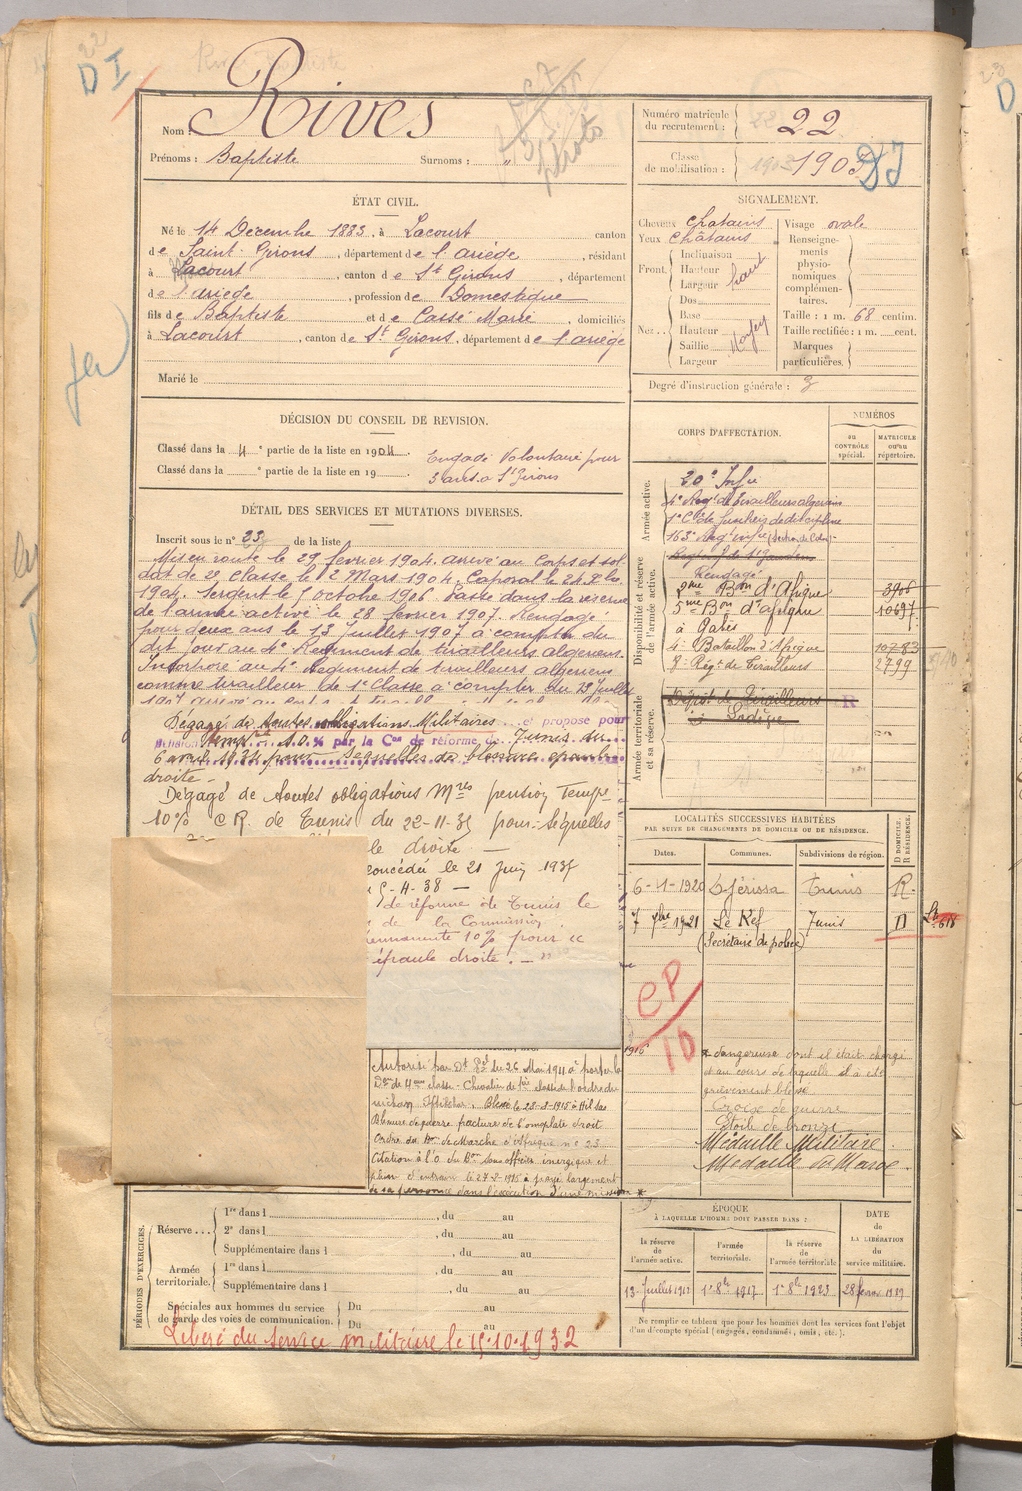 22
D I
Nom : Rives
Prénoms : Baptiste Surnoms : "
photo
Numéro matricule du recrutement : 22
Classe de mobilisation : 1903
DI
ÉTAT CIVIL.
Né le 14 Decembre 1883, à Lacourt canton
de Saint-Girons, département de l'ariège, résidant
à Lacourt, canton de St Girons, département
de l'ariège, profession de Domestique
fils de Baptiste et de Cassé Marie, domiciliés
à Lacourt, canton de St Girons, département de l'ariège
Marié le
SIGNALEMENT.
Cheveux chatains Visage ovale
Yeux chatains
Front Inclinaison Hauteur Largeur haut
Nez Dos Base Hauteur Saillie Largeur Moyen
Renseignements physionomiques complémentaires.
Taille : 1 m. 68 centim.
Taille rectifiée : 1 m. cent.
Marques particulières.
Degré d'instruction générale : 3
DÉCISION DU CONSEIL DE REVISION.
Classé dans la 4e partie de la liste en 1904.
Classé dans la e partie de la liste en 19
Engagé Volontaire pour
3 ans à St Girons
DÉTAIL DES SERVICES ET MUTATIONS DIVERSES.
Inscrit sous le n° 23 de la liste
Mis en route le 29 fevrier 1904. arrivé au Corps et sol-
dat de 2e Classe le 2 Mars 1904. Caporal le 24 8bre
1904. Sergent le 1 octobre 1906. Passé dans la réserve
de l'armée active le 28 fevrier 1907. Rengagé
pour deux ans le 13 Juillet 1907 à compter du
dit jour au 4e Régiment de tirailleurs algeriens.
Incorporé au 4e Régiment de tirailleurs algeriens
comme tirailleur de 1e Classe à compter du 13 Juillet
Dégagé de toutes obligations Militaires et proposé pour
pension temp 10 % par la Con de réforme de Tunis du
6 avril 1934 pour Sequelles de blessure épaule
droite -
Dégagé de toutes obligations Mres pension Tempe
10% C.R. de Tunis du 22-11-35 pour Séquelles
le droite -
concédée le 21 Juin 1937
5-4-38 -
de réforme de Tunis le
de la Commission
permanente 10% pour
épaule droite. -
Autorisé par Dt du 26 Mai 1911 à porter la
Don de 4eme classe - Chevalier de 1ère classe de l'ordre du
nichan Iftikhar. Blessé le 28-8-1915 à
Blessure de guerre fracture de l'omoplate droit
Ordre du Bon de Marche d'afrique n° 23
Citation à l'O. du Bon Sous officier énergique et
plein d'entrain le 27-8-1915 à payé largement
de sa personne dans l'exécution d'une mission *
CORPS D'AFFECTATION.
NUMÉROS
au CONTRÔLE spécial.
MATRICULE ou au répertoire.
Armée active.
20e Infie
4e Regt de tirailleurs algeriens
1e Cie de fusiliers de discipline
163e Regt infie
Disponibilité et réserve de l'armée active.
Rengagé
2me Bon d'Afrique 3906
5me Bon d'afrique 10697
à Gabès
4e Bataillon d'Afrique 10783
8e Régt de Tirailleurs 2799
Armée territoriale et sa réserve.
Dépôt de Tirailleurs R
LOCALITÉS SUCCESSIVES HABITÉES
PAR SUITE DE CHANGEMENTS DE DOMICILE OU DE RÉSIDENCE.
Dates. Communes. Subdivisions de région. D DOMICILE. R RÉSIDENCE.
6-1-1920 Djérissa Tunis R.
7 7bre 1921 Le Kef Tunis D
(Secrétaire de police)
CP
10
1916
* dangereuse dont il était chargé
et au cours de laquelle il a été
grièvement blessé
Croix de guerre
Etoile de bronze
Médaille Militaire
Médaille du Maroc.
PÉRIODES D'EXERCICES.
Réserve... 1re dans l , du au
2e dans l , du au
Supplémentaire dans l , du au
Armée territoriale. 1re dans l , du au
Supplémentaire dans l , du au
Spéciales aux hommes du service de garde des voies de communication. Du au
Du au
Libéré du service militaire le 15.10.1932
ÉPOQUE
À LAQUELLE L'HOMME DOIT PASSER DANS :
la réserve de l'armée active. l'armée territoriale. la réserve de l'armée territoriale
DATE de LA LIBÉRATION du service militaire.
13 Juillet 1917 1er 8bre 1917 1er 8bre 1923 28 fevrier 1929
Ne remplir ce tableau que pour les hommes dont les services font l'objet
d'un décompte spécial (engagés, condamnés, omis, etc.).